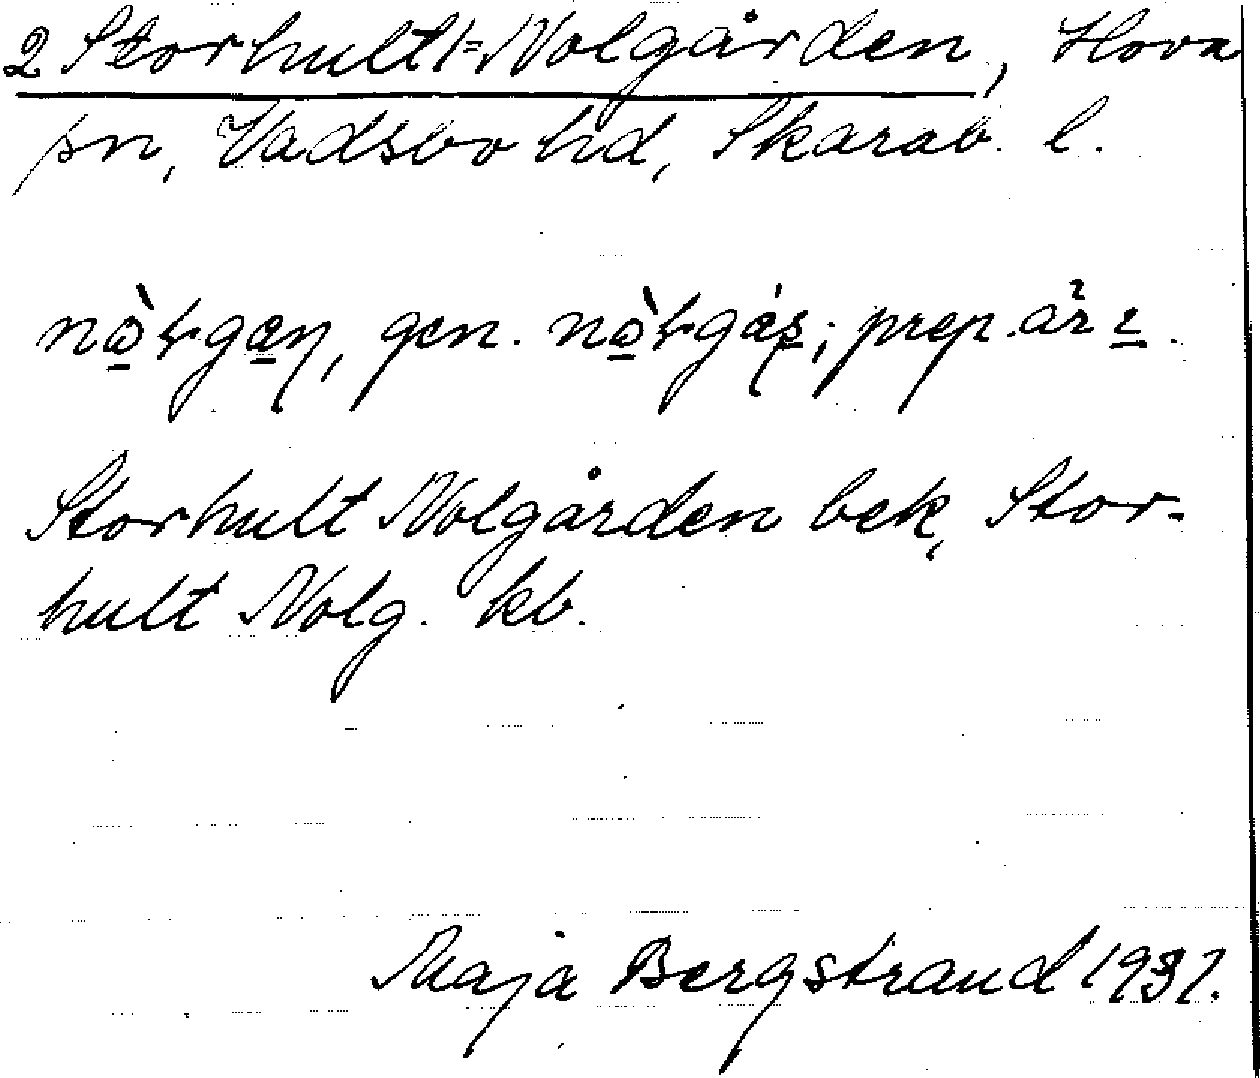 2 Storhult-Nolgården, Hova
sn, Vadsbo hd, Skarab. l.
gen. prep.
Storhult Nolgården bek, Stor-
hult Nolg. kb.
Maja Bergstrand 1937.